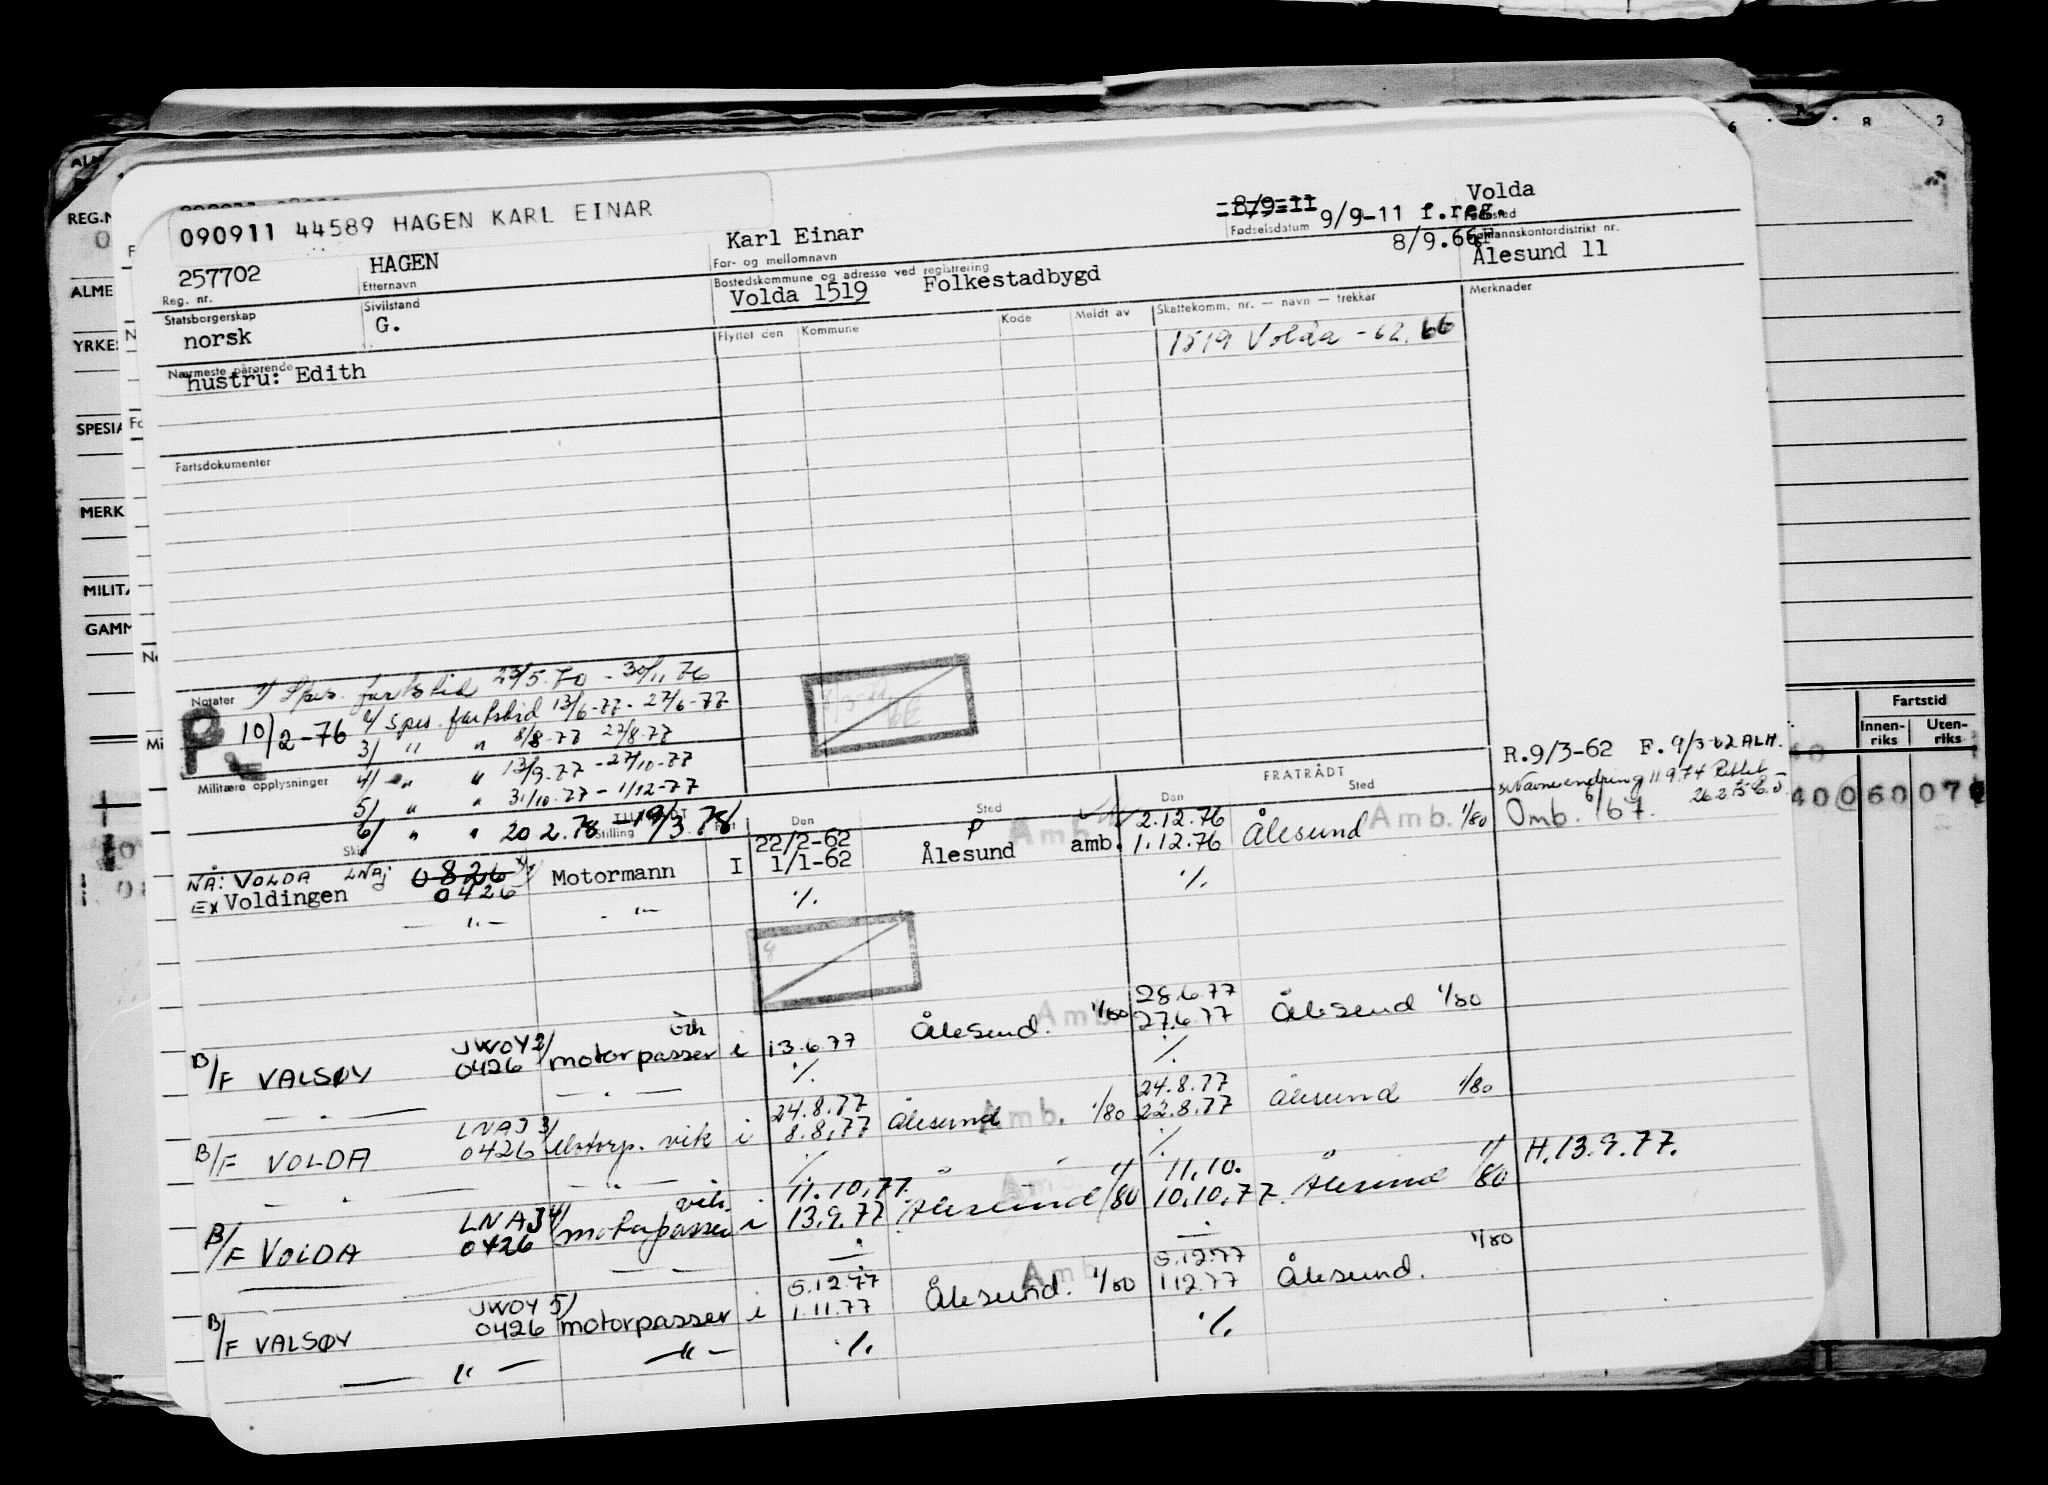 090911 44589 HAGEN KARL EINAR
257702
Reg. nr.
HAGEN
Etternavn
Karl Einar
For- og mellomnavn
8/9-11 9/9-11 f.reg.
Fødselsdatum
8/9.66
Volda
Statsborgerskap
norsk
Sivilstand
G.
Bostedskommune og adresse ved registrering
Volda 1519 Folkestadbygd
mannskontordistrikt nr.
Ålesund 11
Nærmeste pårørende
hustru: Edith
Flyttet den Kommune Kode Meldt av Skattekomm. nr. — navn — trekkår Merknader
1519 Volda - 62. 66
Fartsdokumenter
Notater 1/ Spes. fartstid 23/5.70 - 30/11 76
P 10/2-76 2/ Spes. fartstid 13/6-77 - 27/6-77
3/ " " 8/8-77 22/8-77
Militære opplysninger 4/ " " 13/9.77 - 27/10-77
5/ " " 31/10.77 - 1/12-77
6/ " " 20.2.78 - 19/3.78
R.9/3-62 F. 9/3-62 ALH.
Navneendring 11 9.74
Omb. '67.
Stilling Den Sted FRATRÅDT Den Sted
NÅ: VOLDA LNAJ 0826
Ex Voldingen 0426 Motormann I 22/2-62 1/1-62 P Ålesund Amb. amb. 2.12.76 1.12.76 Ålesund Amb. 1/80
— " — - " - % %
B/F VALSØY JWOY 2/ 0426 motorpasser vik i 13.6.77 Ålesund. Amb. 1/80 28.6.77 27.6.77 Ålesund 1/80
— " — — " — % %
B/F VOLDA LNAJ 3/ 0426 Motorp. vik i 24.8.77 8.8.77 Ålesund Amb. 1/80 24.8.77 22.8.77 Ålesund 1/80
— " — — " — % %
B/F VOLDA LNAJ 4/ 0426 motorpasser vik. i 11.10.77. 13.9.77 Ålesund 1/80 11.10. 10.10.77. Ålesund 1/80 H.13.9.77.
B/F VALSØY JWOY 5/ 0426 motorpasser i 5.12.77 1.11.77 Ålesund. Amb 1/80 5.12.77 1.12.77 Ålesund. 1/80
— " — — " — % %
REG.N
ALME
YRKES
SPESIA
MERK
MILITÆ
GAMM
Fartstid
Innen-riks Uten-riks